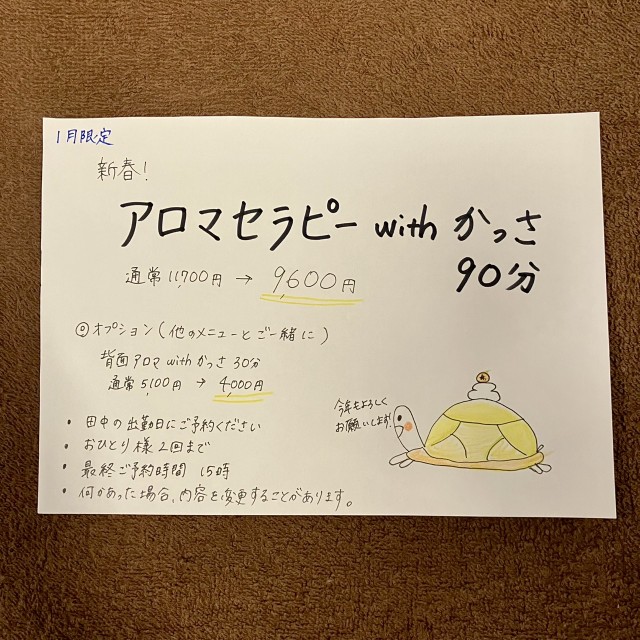 1月限定
新春!
アロマセラピー with かっさ
90分
通常11,700円 → 9,600円
◎オプション(他のメニューとご一緒に)
背面アロマ with かっさ 30分
通常5,100円 → 4,000円
・田中の出勤日にご予約ください
・おひとり様2回まで
・最終ご予約時間 15時
・何かあった場合、内容を変更することがあります。
今年もよろしく
お願いします!